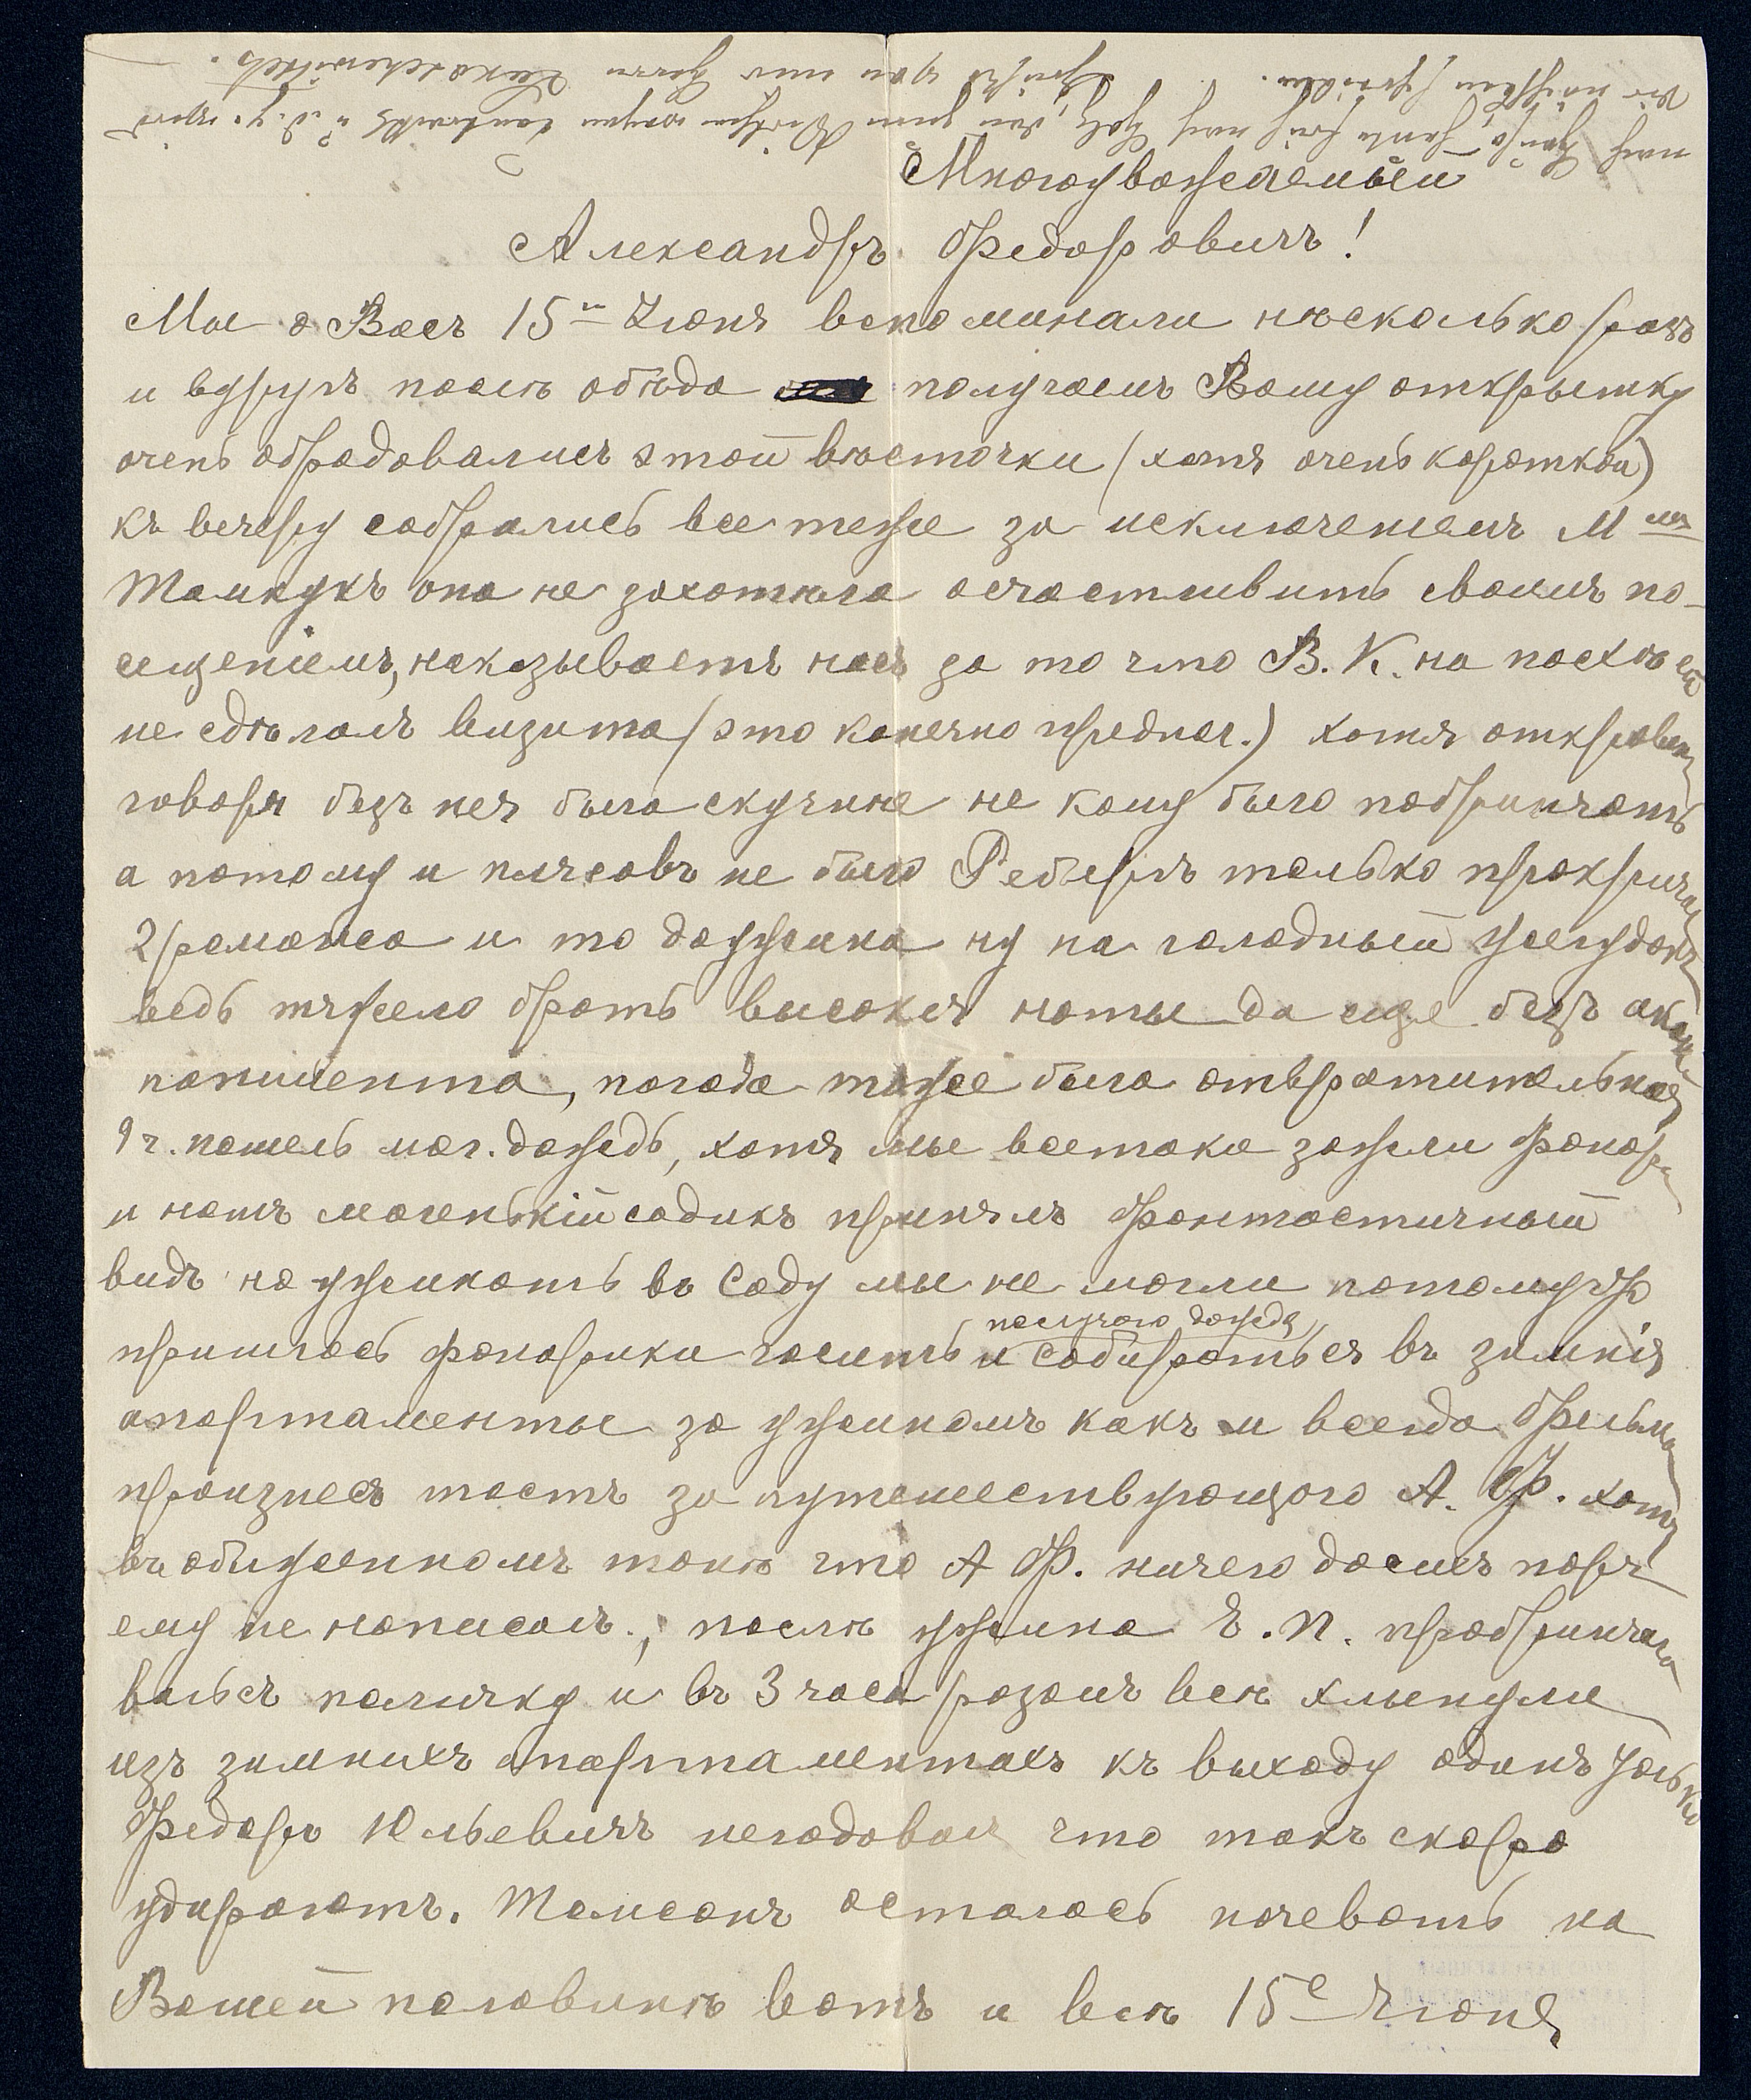 Многоуважаемый
Александръ Федоровичъ!
Мы о Васъ 15го Iюня вспоминали нѣсколько разъ
и вдругъ послѣ обѣда получаемъ Вашу открытку
очень обрадовались этой вѣсточки (хотя очень короткой)
къ вечеру собрались все теже за исключенiемъ М
она не захотѣла осчастливить своимъ по-
сещенiемъ, наказываетъ насъ за то что В. К. на пасхѣ ей
не сдѣлалъ визита (это конечно предлог.) хотя откровен
говоря безъ нея было скучнѣе не кому было побринчать
а потому и плясовъ не было Робертъ только прокричал
2 романса и то до ужина ну на голодный желудокъ
ведь тяжело брать высокiя ноты да еще безъ акком-
панимента, погода тоже была отвратительная
9 ч. пошелъ мал. дождь, хотя мы всетаки зажгли фонари
и нашъ маленькiй садикъ принялъ фантастичный
видъ но ужинать въ саду мы не могли потому
пришлось фонарики гасить по случаю дождя и собираться въ зимнiя
апартаменты за ужиномъ какъ и всегда
произнесъ тостъ за путешествующаго А. Ф. хотя
въ обиженномъ тонѣ что А Ф. ничего до сихъ поръ
ему не написалъ., послѣ ужина Е. П. пробринчала
вальсъ полечку и въ 3 часа разомъ всѣ хлынули
изъ зимнихъ апартаментахъ къ выходу одинъ только
Федоръ Юльевичъ негодовал что такъ скоро
удираютъ. осталась ночевать на
Вашей половинѣ вотъ и все 15е Iюня